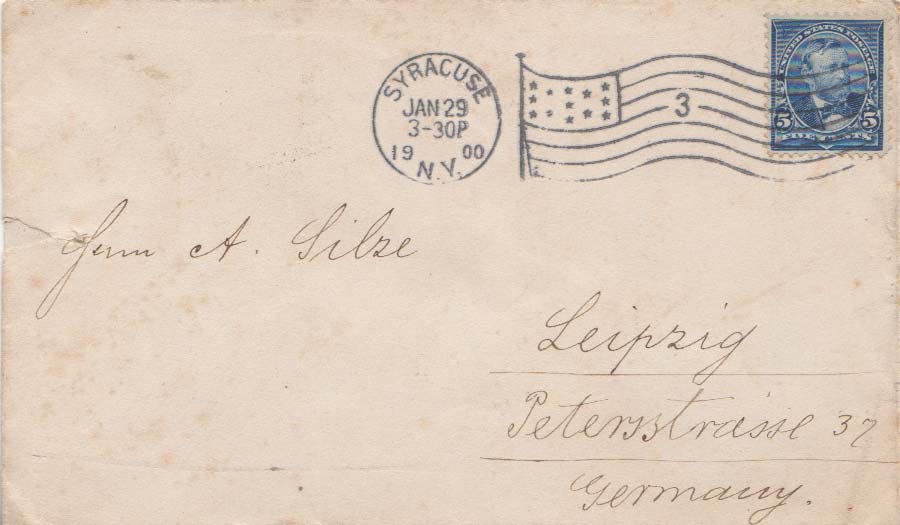 SYRACUSE
JAN 29
3-30P
19 00
N.Y.
3
UNITED STATES POSTAGE
5 5
FIVE CENTS
Herrn A. Silze
Leipzig
Petersstrasse 37
Germany.